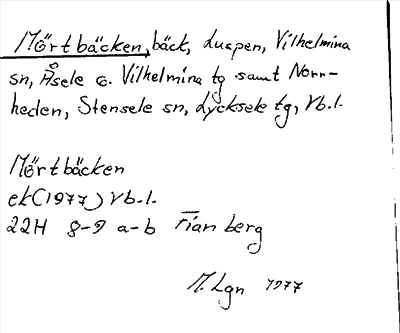 Mörtbäcken, bäck, Luspen, Vilhelmina
sn, Åsele o. Vilhelmina tg samt Norr-
heden, Stensele sn, Lycksele tg, Vb.l.
Mörtbäcken
ek(1977) Vb.l.
22H 8-9 a-b Fianberg
M. Lgn 1977